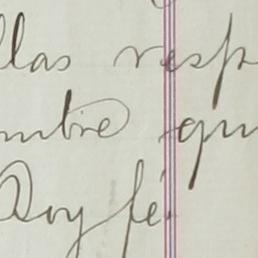 llas resp
mbre qu
Doy fé.